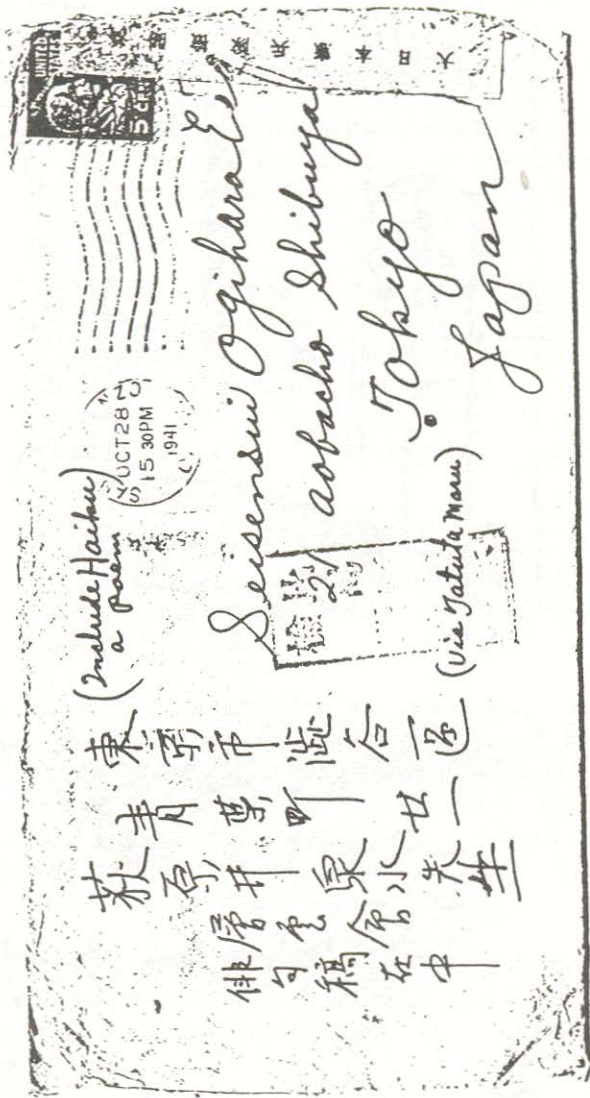 (Include Haiku
a poem)
OCT28
5 30PM
1941
Seisensui Ogihara
21 aobacho Shibuya
Tokyo
Japan
(Via Tatuta Maru)
東京市澁谷區
青葉町廿一
荻原井泉水先生
層雲會
俳句稿在中